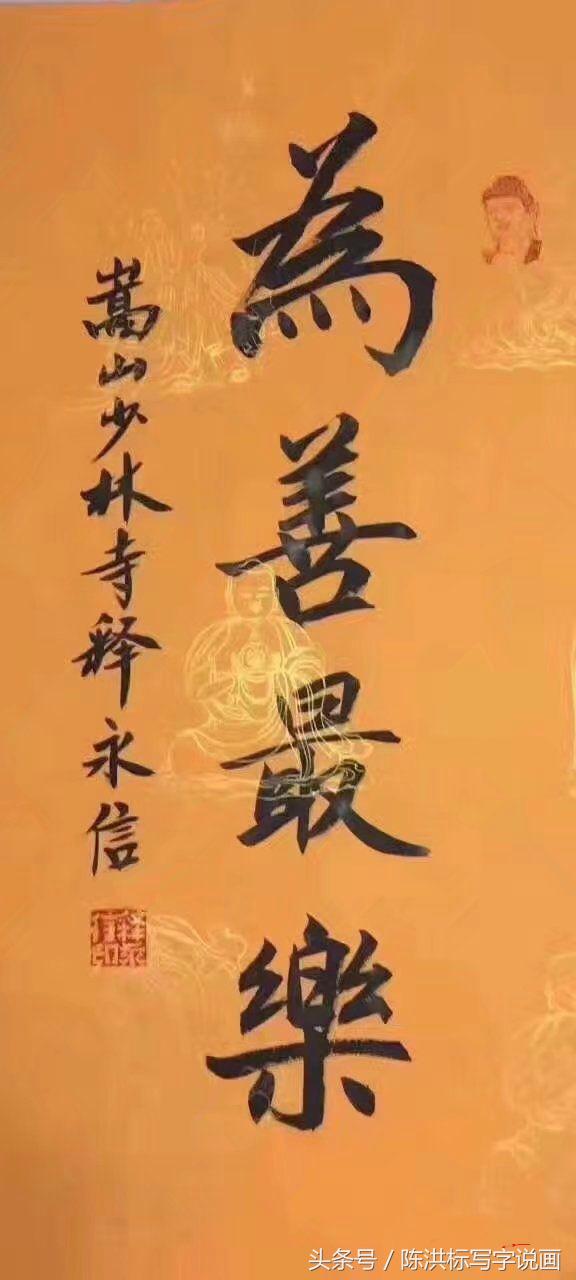 為善最樂
嵩山少林寺释永信
释永信印
头条号 / 陈洪标写字说画